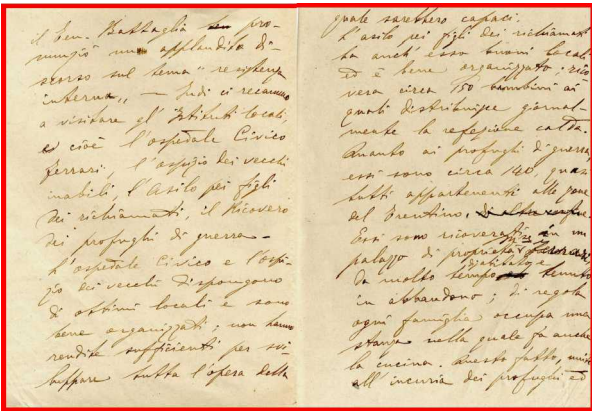 il Gen. Battaglia pro-
nunziò un applaudito di-
scorso sul tema "resistenza
interna" — Indi ci recammo
a visitare gl'Istituti locali,
e cioè l'ospedale Civico
Ferrari, l'ospizio dei vecchi
inabili, l'Asilo pei figli
dei richiamati, il Ricovero
dei profughi di guerra —
L'ospedale Civico e l'ospi-
zio dei vecchi dispongono
di ottimi locali e sono
bene organizzati; non hanno
rendite sufficienti per svi-
luppare tutta l'opera della
quale sarebbero capaci.
L'asilo pei figli dei richiamati
ha anch'esso buoni locali
ed è bene organizzato; rico
vera circa 150 bambini ai
quali distribuisce giornal-
mente la refezione calda.
Quanto ai profughi di guerra,
essi sono circa 140, quasi
tutti appartenenti alle zone
del Trentino.
Essi sono ricoverati in un
palazzo di proprietà
disabitato e
da molto tempo tenuto
in abbandono; di regola
ogni famiglia occupa una
stanza nella quale fa anche
la cucina. Questo fatto, unito
all'incuria dei profughi ed